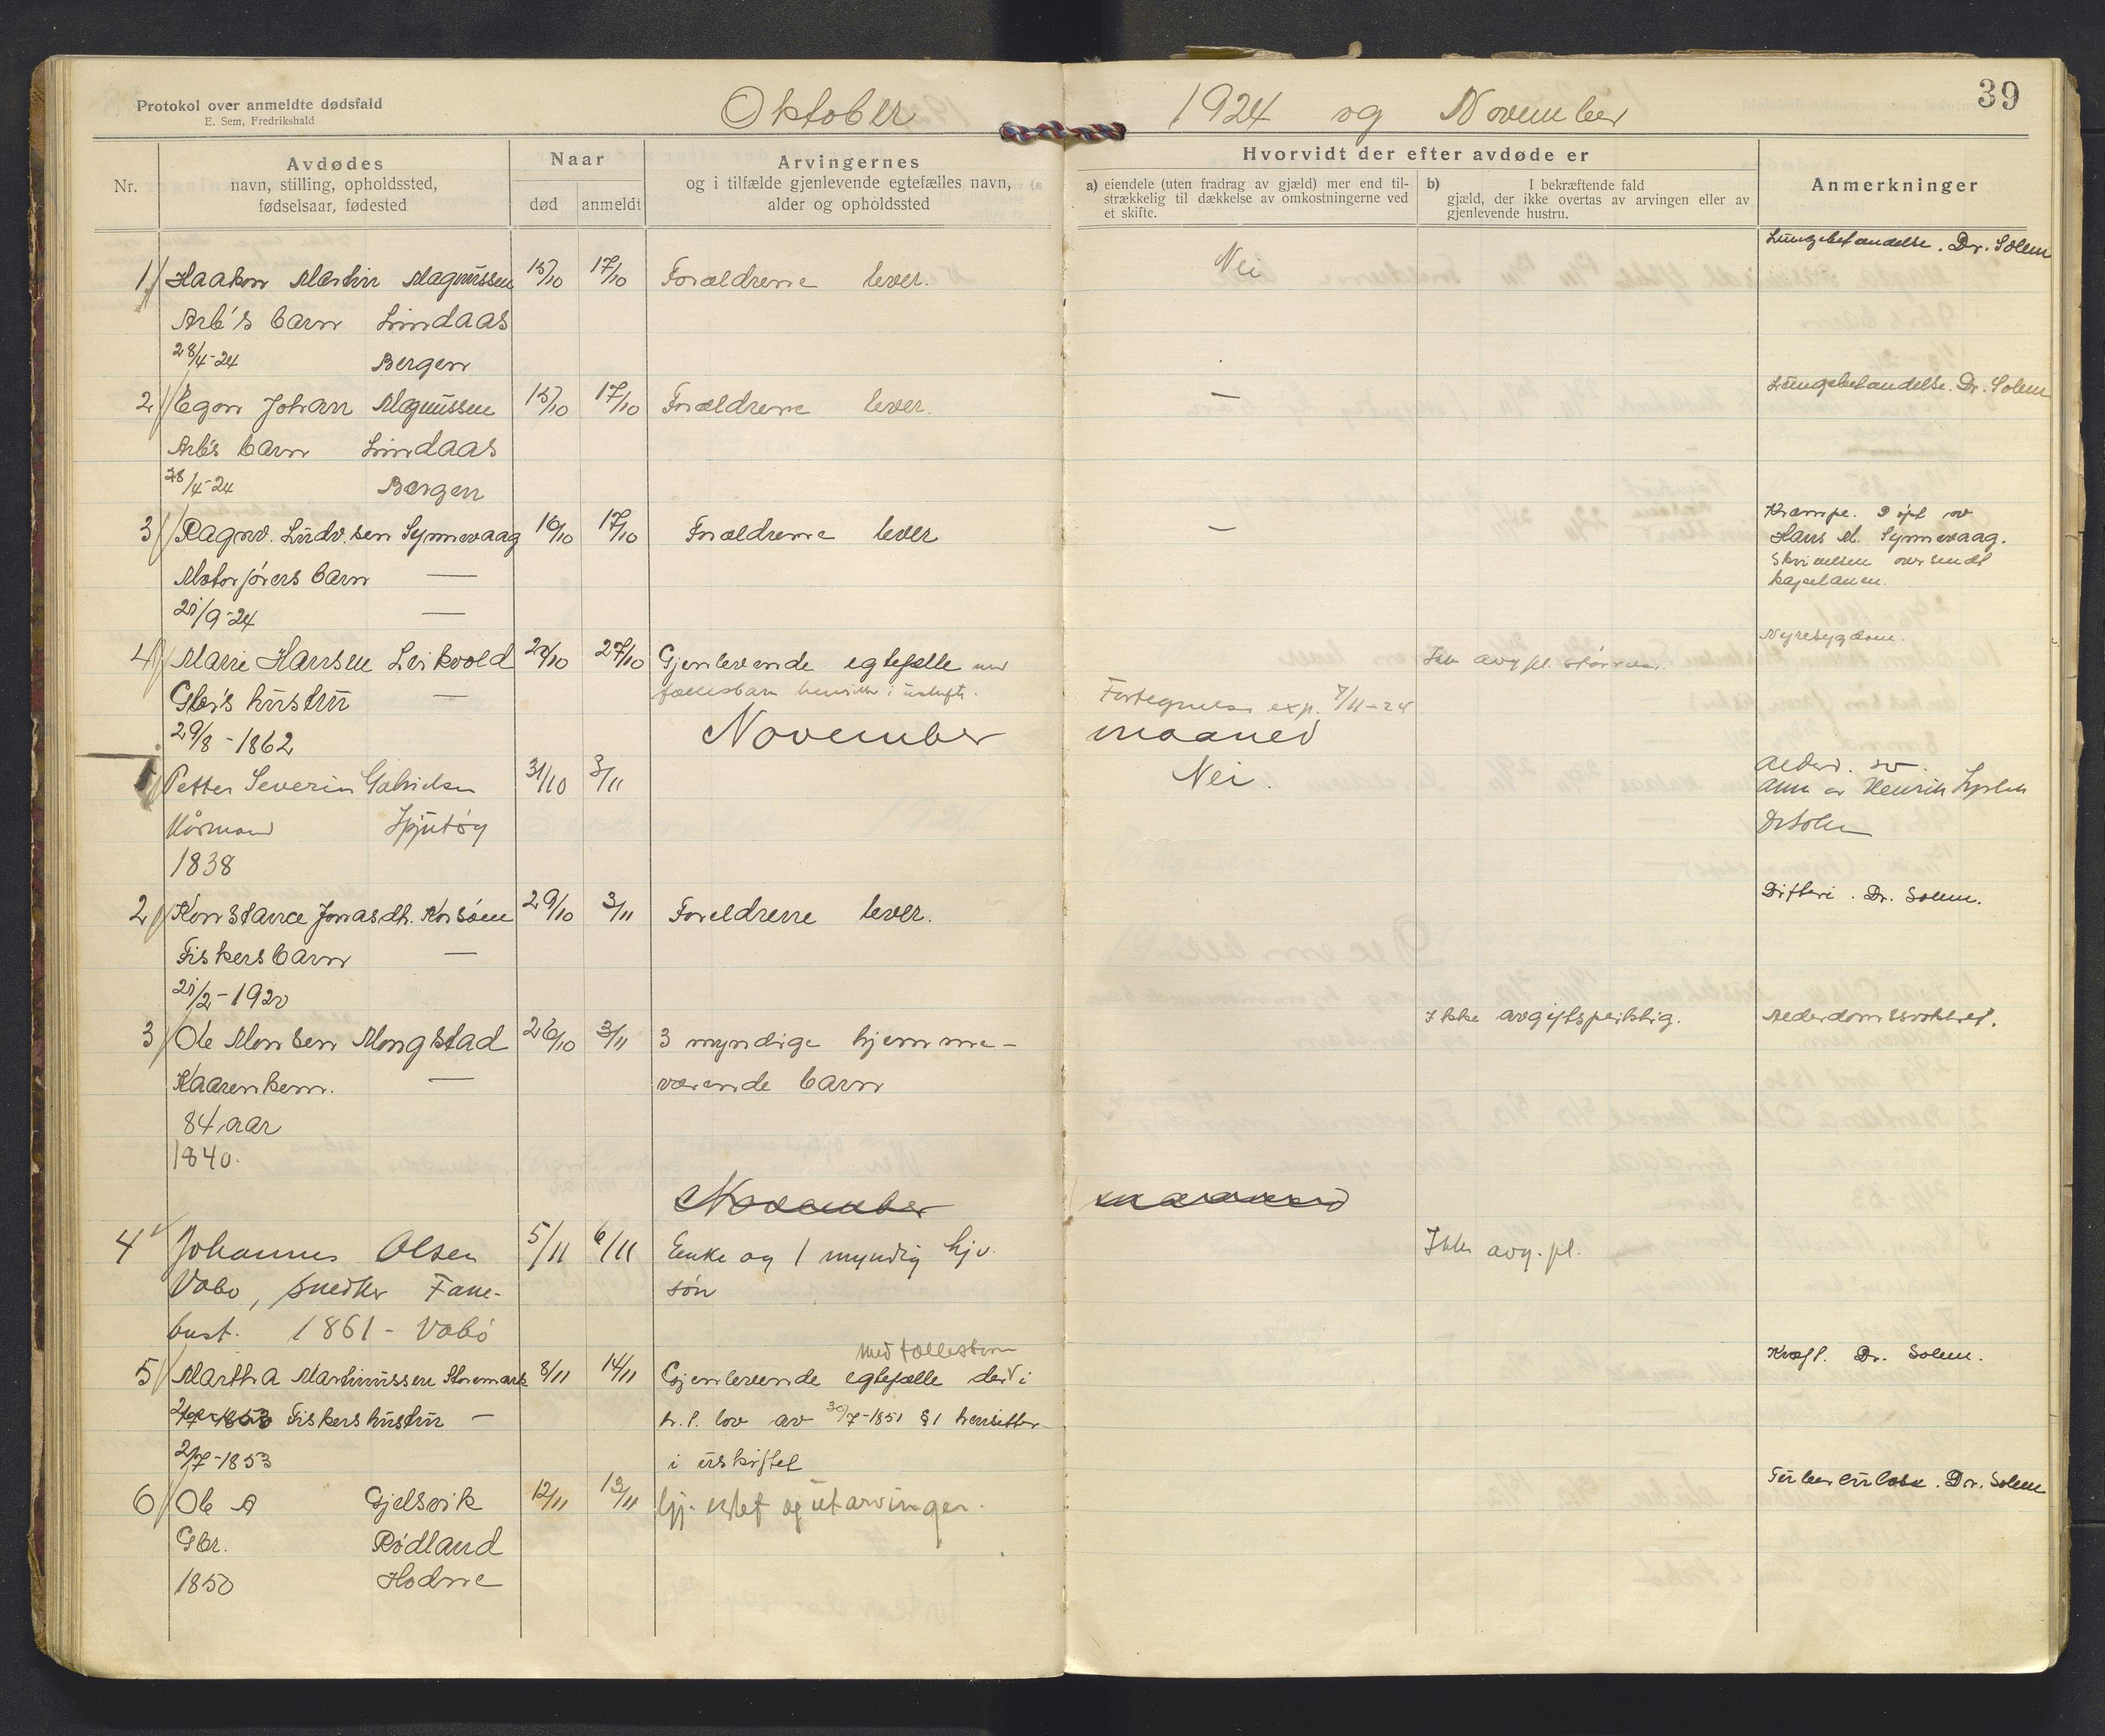 Protokol over anmeldte dødsfald
E. Sem, Fredrikshald
Oktober 1924 og November
39
Nr.
Avdødes
navn, stilling, opholdssted,
fødselsaar, fødested
Naar
død
anmeldt
Arvingernes
og i tilfælde gjenlevende egtefælles navn,
alder og opholdssted
Hvorvidt der efter avdøde er
a) eiendele (uten fradrag av gjæld) mer end til-
strækkelig til dækkelse av omkostningerne ved
et skifte.
b) I bekræftende fald
gjæld, der ikke overtas av arvingen eller av
gjenlevende hustru.
Anmerkninger
1 Haakon Martin Magnussen 15/10 17/10 Forældrene lever. Nei Lungebetændelse. Dr. Solem
Arb's barn Lindaas
28/4-24 Bergen
2 Egon Johan Magnussen 15/10 17/10 Forældrene lever. — Lungebetændelse. Dr. Solem
Arb's barn Lindaas
28/4-24 Bergen
3 Ragnv. Ludv.sen Synnevaag 16/10 17/10 Forældrene lever — Krampe. Opl av
Hans M. Synnevaag.
Motorførers barn — Skrivelsen oversendt
kapelanen.
21/9-24 —
4 Marie Hansen Leikvold 27/10 Gjenlevende egtefælle med Nyresygdom.
Gbr's hustru — fællesbarn i uskifte.
29/8-1862 Fortegnelse exp. 7/11-24
November maaned
Petter Severin Gabrielsen 31/10 3/11 Nei.
1838 Dr Solem
2 Konstance Jonasdt. Korsöen 29/10 3/11 Foreldrene lever. Difteri. Dr. Solem.
Fiskers barn —
21/2-1920
3 Ole Monsen Mongstad 26/10 3/11 3 myndige hjemme- Ikke avgiftspliktig. Alderdomssvakhet.
Kaarenkem. — værende barn
84 aar
1840.
November maaned
4 Johannes Olsen 5/11 6/11 Enke og 1 myndig hjv. Ikke avg. pl.
Vabø, snedker Fane- søn
bust. 1861 - Vabø
5 Martha Martinussen Storemark 8/11 14/11 Gjenlevende egtefælle der i Kræft. Dr. Solem.
med fællesbarn
Fiskers hustru — h.t. lov av 30/7-1851 §1 hensitter
2/7-1853 i uskiftet
6 Ole A Gjelsvik 12/11 13/11 Gj. og utarvinger. Tuberculose. Dr. Solem
Gbr. Rødland
1850 Hodne